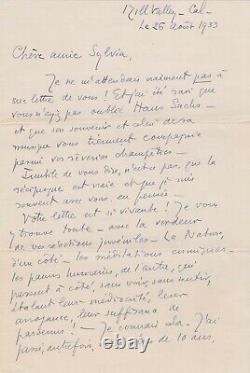 Mill Valley - Cal -
Le 26 Août 1933
Chère amie Sylvia,
Je ne m'attendais vraiment pas à
une lettre de vous ! Et j'ai été ravi que
vous n'ayez pas oublié Hans Sachs -
et que son souvenir et celui de sa
musique vous tiennent compagnie
parmi vos rêveries champêtres -
Inutile de vous dire, n'est-ce pas que la
réciproque est vraie et que je suis
souvent avec vous, en pensée -
Votre lettre est si vivante ! Je vous
y trouve toute - avec la verdeur
de vos juvéniles - La Nature,
d'un côté - les méditations cosmiques -
les pauvres humains, de l'autre, qui
passent à côté, sans voir, sans sentir,
étalant leur médiocrité, leur
arrogance, leur suffisance de
parvenus ! - Je connais cela. J'ai
passé, autrefois, de 10 ans,